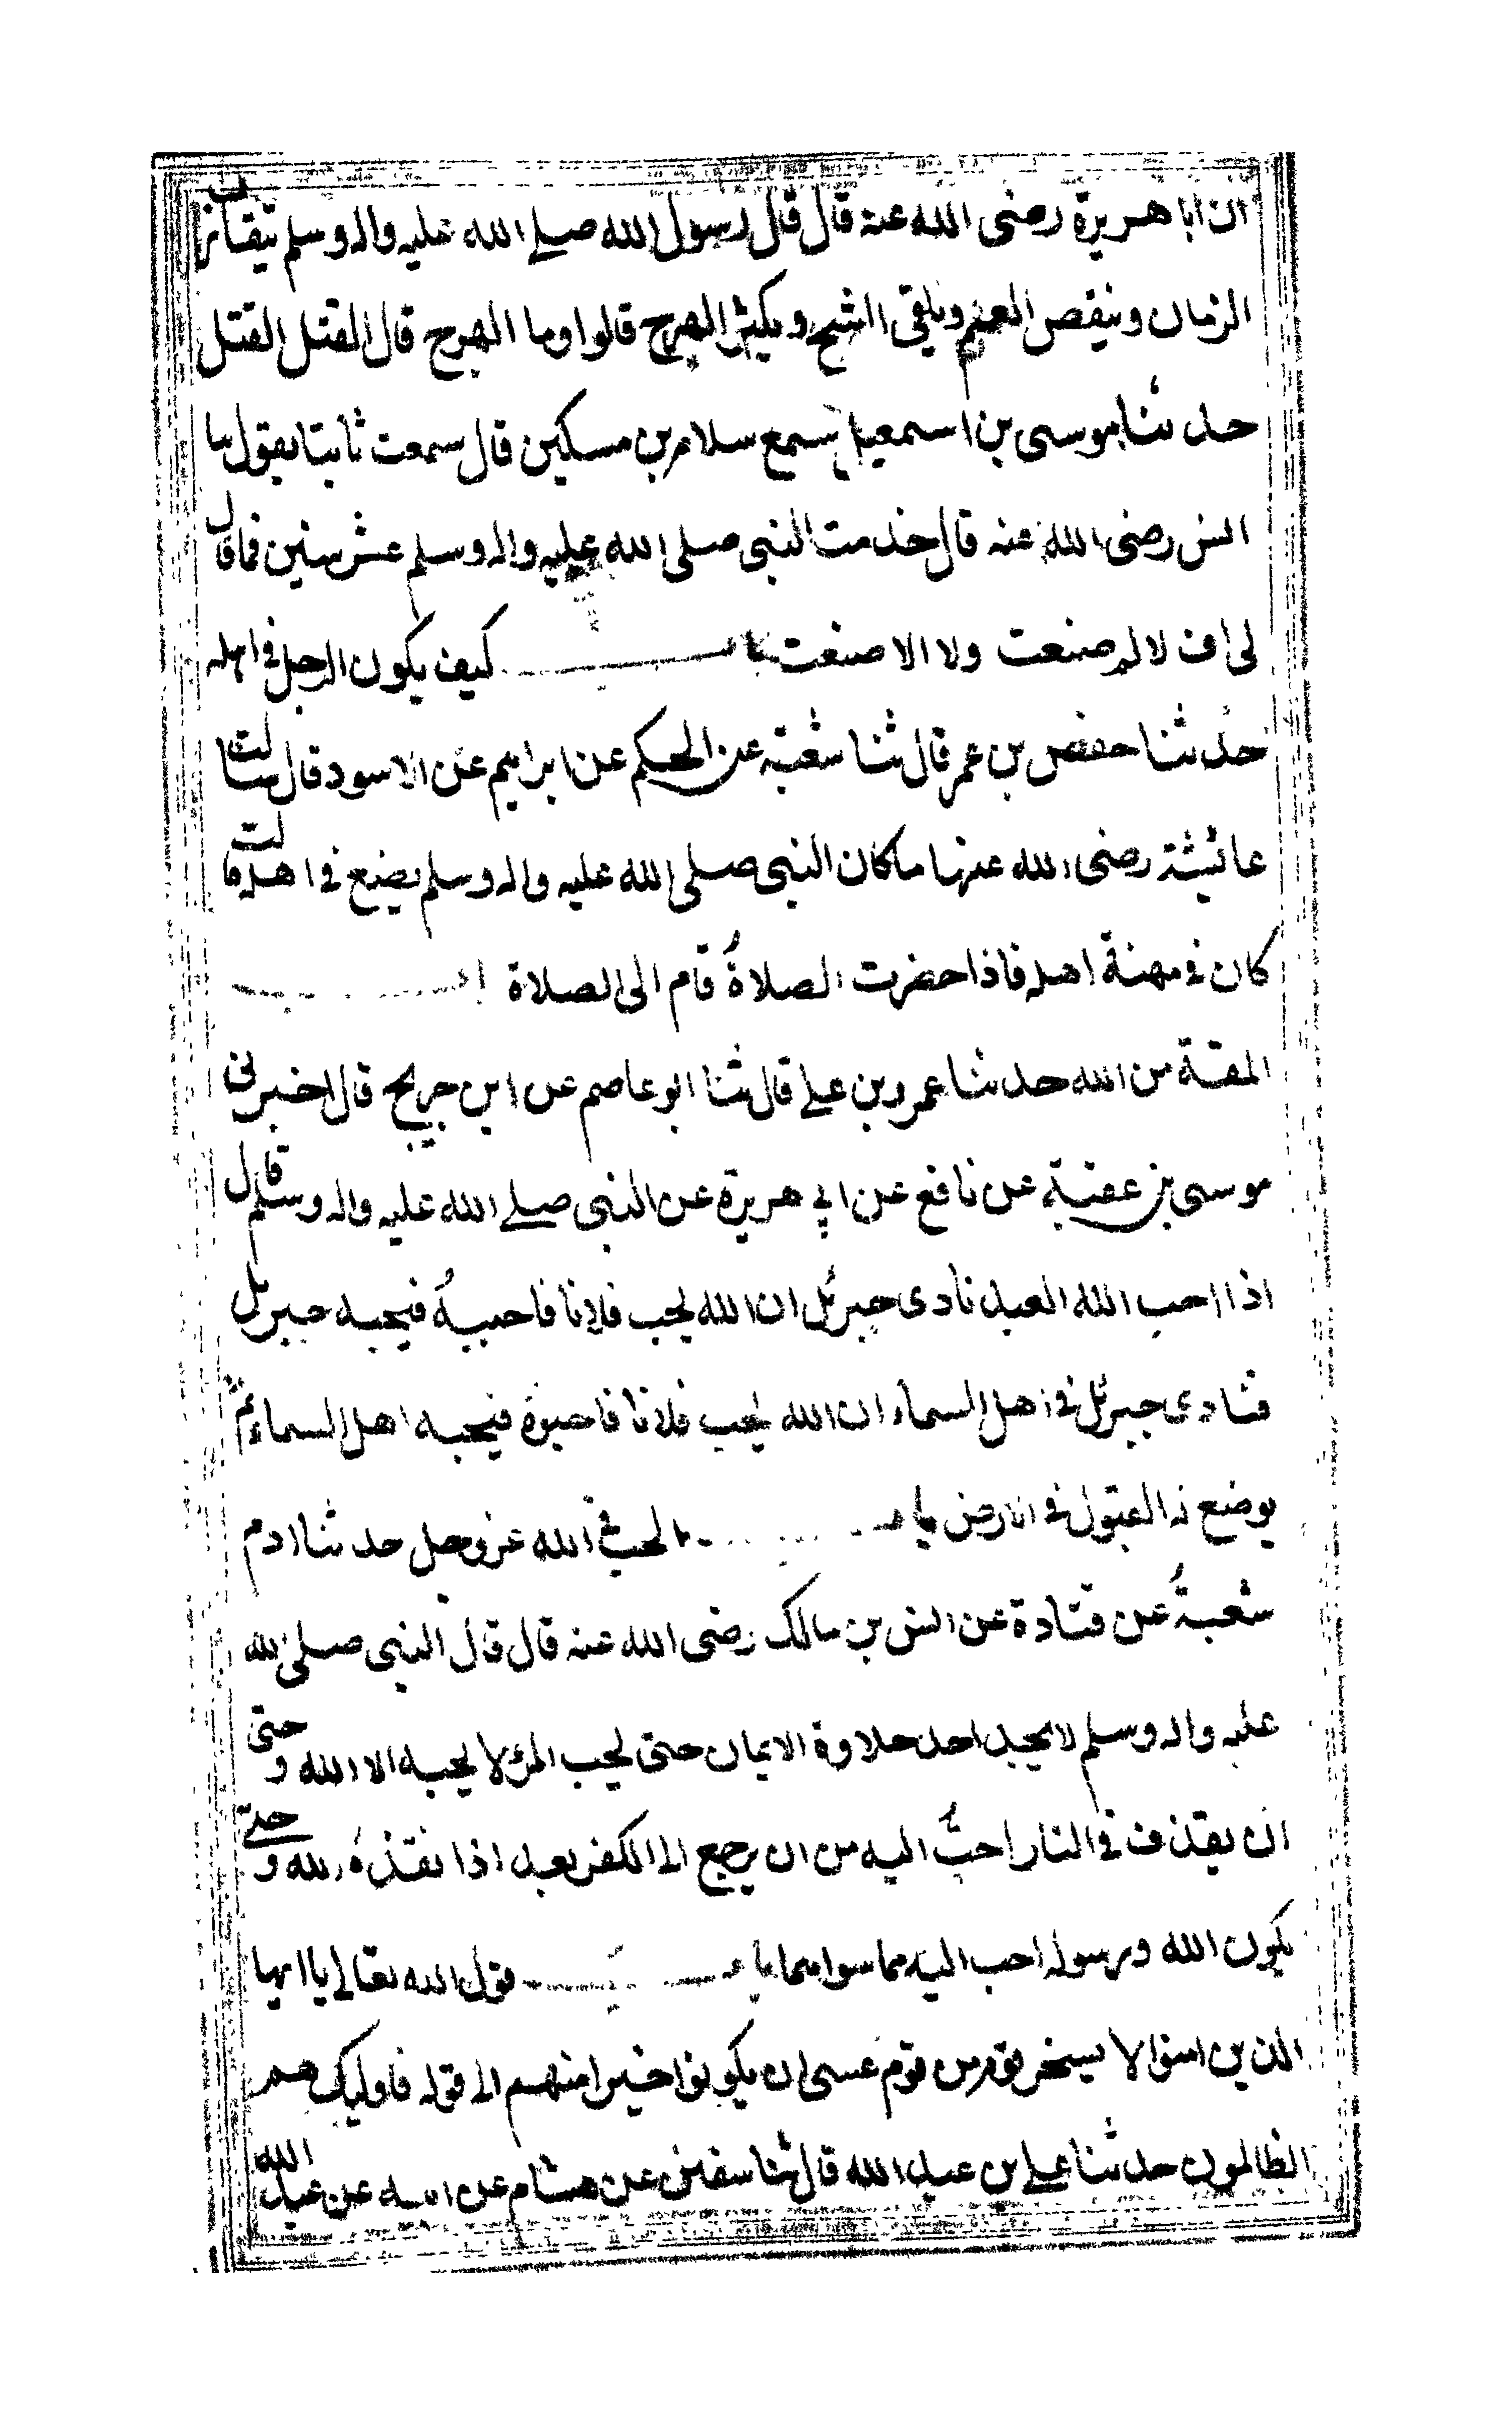 ان ابا هريرة رضى الله عنه قال قال رسول الله صلے الله عليه واله وسلم يتقارب
الزمان وينقص العلم ويلقى الشح ويكثر الهرج قالوا وما الهرج قال القتل القتل
حدثنا موسى بن اسمعيل سمع سلام بن مسكين قال سمعت ثابتا يقول ثنا
انس رضى الله عنه قال خدمت النبى صلى الله عليه واله وسلم عشر سنين فما قال
لى اف لا لم صنعت ولا الا صنعت باب كيف يكون الرجل فى اهله
حدثنا حفص بن عمر قال ثنا شعبة عن الحكم عن ابراهيم عن الاسود قال سالت
عائشة رضى الله عنها ما كان النبى صلى الله عليه واله وسلم يصنع فى اهله قالت
كان فى مهنة اهله فاذا حضرت الصلاة قام الى الصلاة
المقة من الله حدثنا عمرو بن علے قال ثنا ابو عاصم عن ابن جريج قال اخبرنى
موسى بن عقبة عن نافع عن ابى هريرة عن النبى صلے الله عليه واله وسلم قال
اذا احب الله العبد نادى جبرئل ان الله يحب فلانا فاحببه فيحبه جبرئل
فنادى جبرئل فى اهل السماء ان الله يحب فلانا فاحبوه فيحبه اهل السماء ثم
يوضع له القبول فى الارض باب الحب فى الله عز وجل حدثنا ادم
شعبة عن قتادة عن انس بن مالك رضى الله عنه قال قال النبى صلى الله
عليه واله وسلم لا يجد احد حلاوة الايمان حتى يحب المرء لا يحبه الا الله و حتى
ان يقذف فى النار احب اليه من ان يرجع الى الكفر بعد اذا نقذه الله و حتے
يكون الله ورسوله احب اليه مما سواهما باب قول الله تعالى يا ايها
الذين امنوا لا يسخر قوم من قوم عسى ان يكونوا خيرا منهم الى قوله فاوليك هم
الظالمون حدثنا علے بن عبد الله قال ثنا سفين عن هشام عن ابيه عن عبد الله